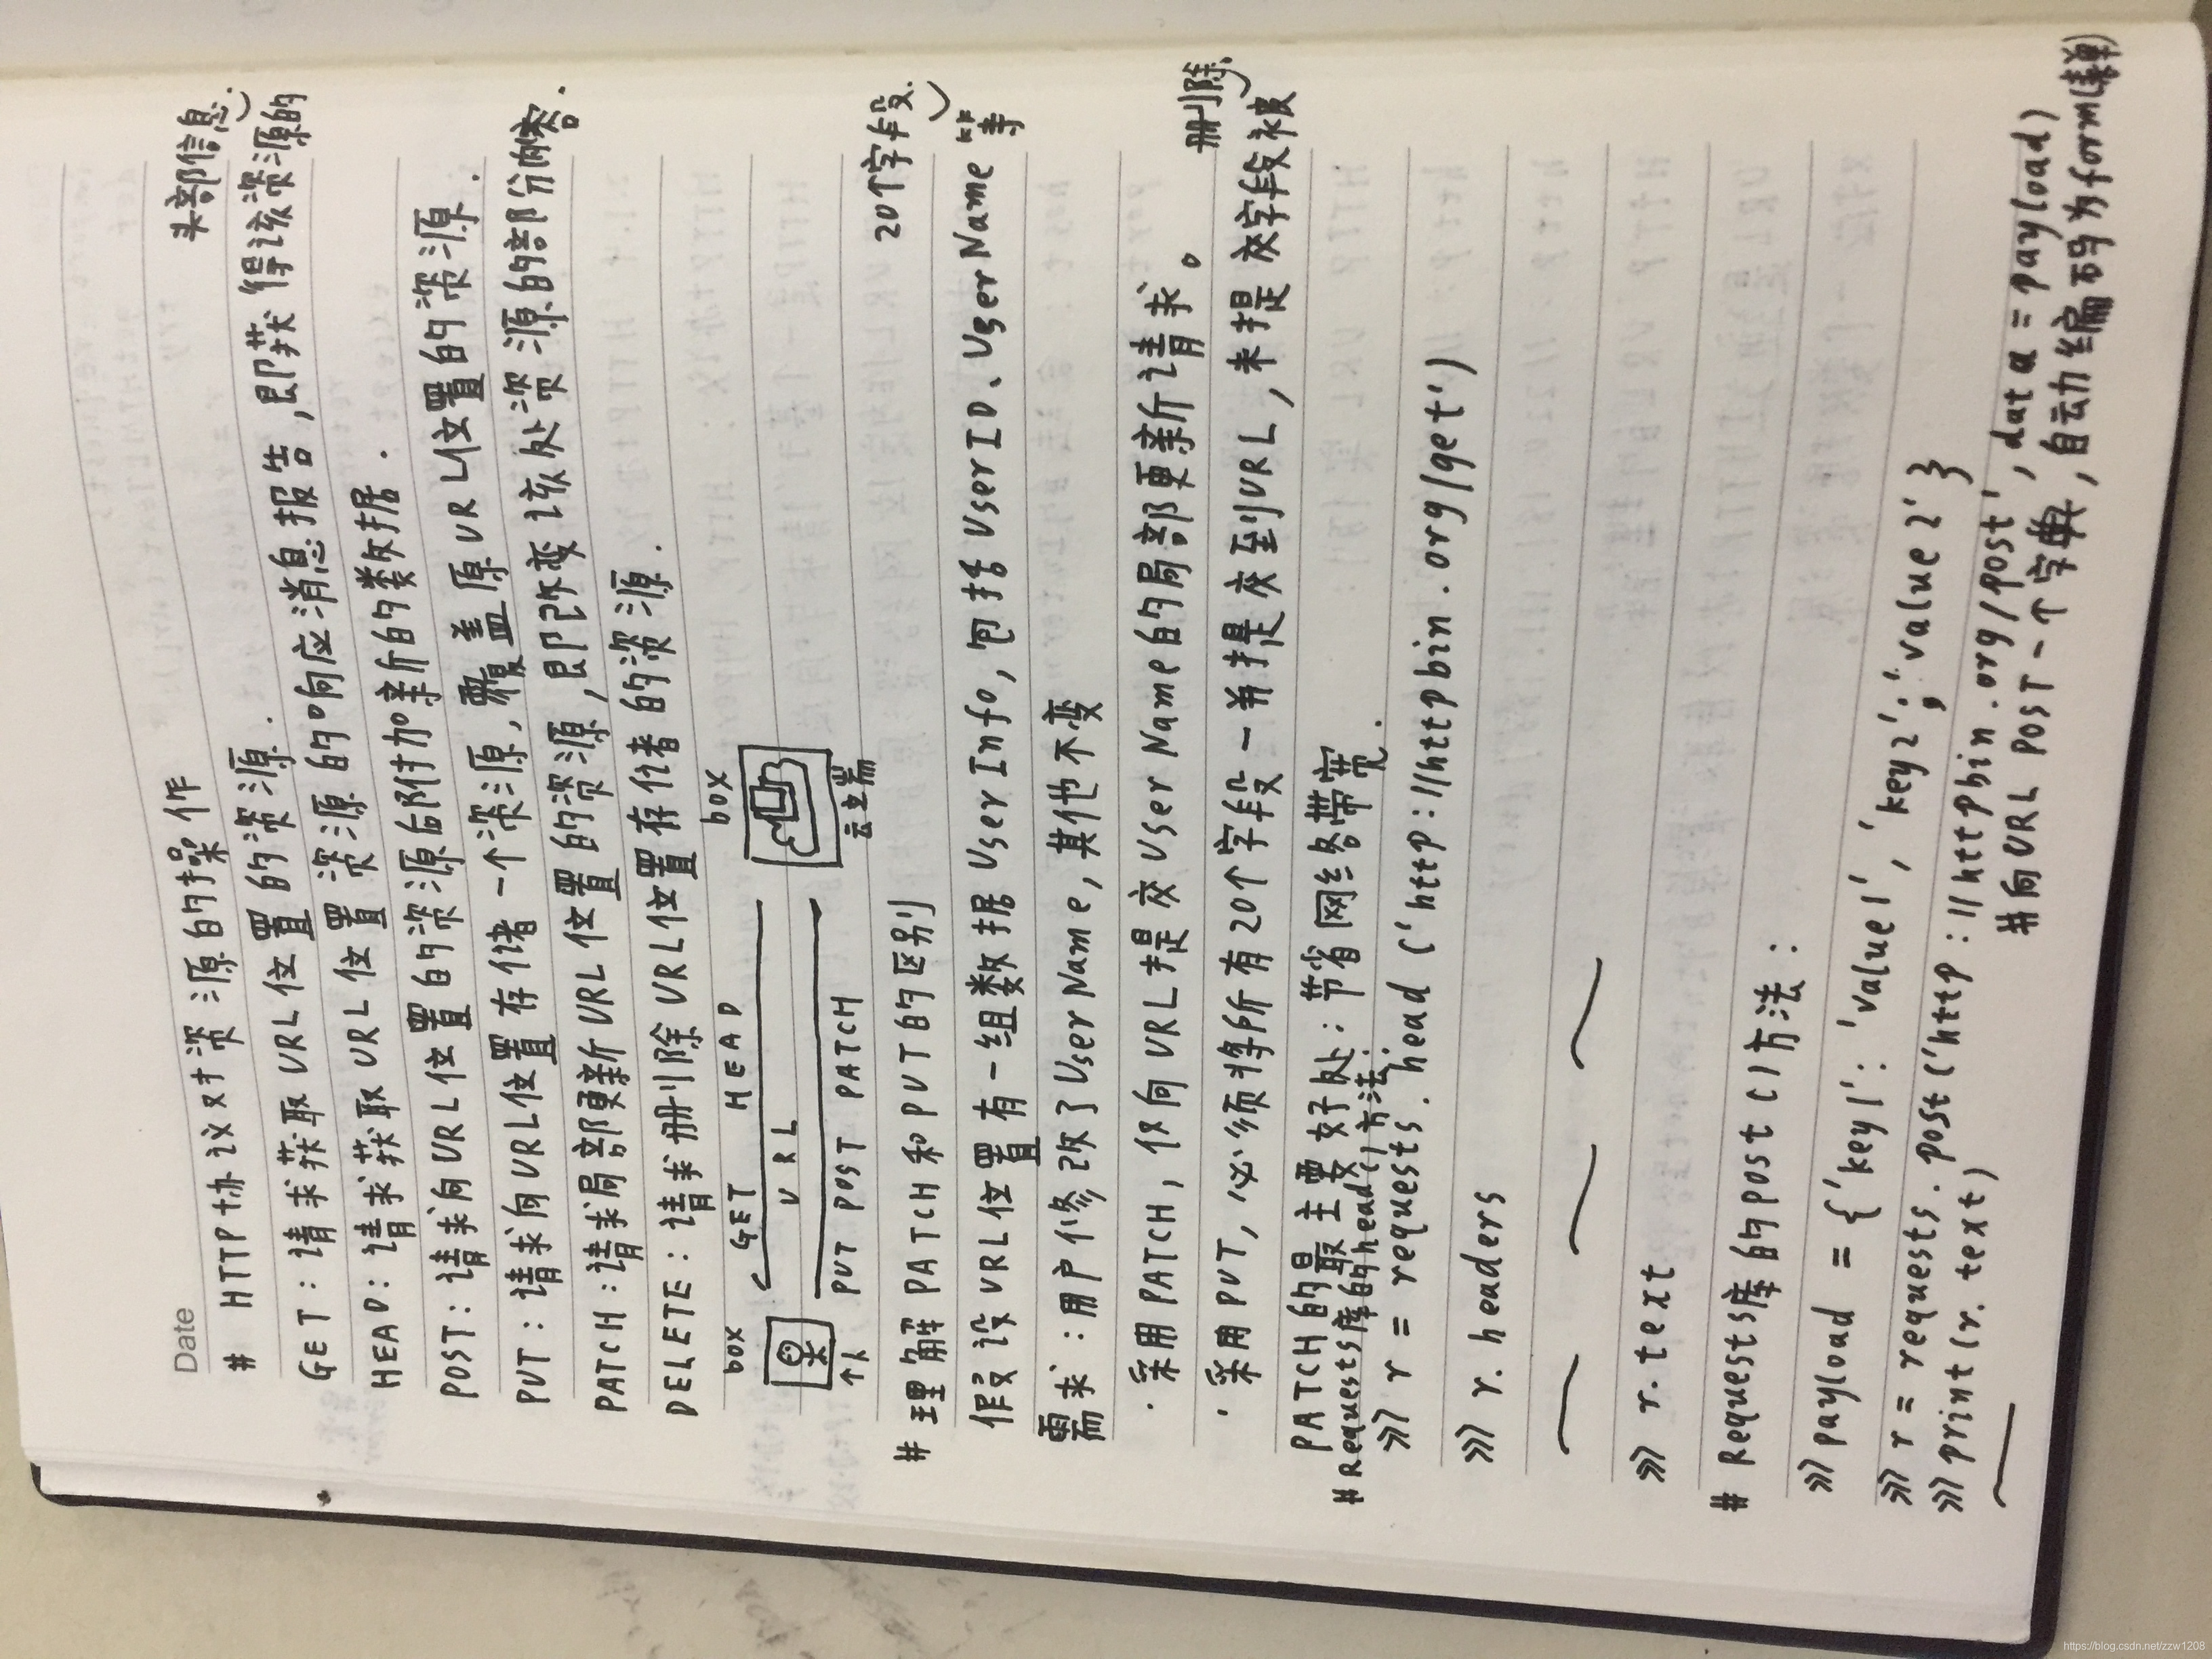 Date
# HTTP协议对资源的操作
GET：请求获取URL位置的资源.
HEAD：请求获取URL位置资源的响应消息报告,即获得该资源的
头部信息.
POST：请求向URL位置的资源后附加新的数据.
PUT：请求向URL位置存储一个资源,覆盖原URL位置的资源.
PATCH：请求局部更新URL位置的资源,即改变该处资源的部分内容.
DELETE：请求删除URL位置存储的资源.
box GET HEAD box
URL
人 PUT POST PATCH 云端
# 理解PATCH和PUT的区别
假设URL位置有一组数据UserInfo,包括UserID、UserName等
20个字段.
需求：用户修改了UserName,其他不变
·采用PATCH,仅向URL提交UserName的局部更新请求。
·采用PUT,必须将所有20个字段一并提交到URL,未提交字段被
删除.
PATCH的最主要好处：节省网络带宽.
#Requests库的head()方法：
>>> r = requests.head('http://httpbin.org/get')
>>> r.headers
>>> r.text
# Requests库的post()方法：
>>> payload = {'key1':'value1','key2':'value2'}
>>> r = requests.post('http://httpbin.org/post',data=payload)
>>> print(r.text)
#向URL POST一个字典,自动编码为form(表单)
https://blog.csdn.net/zzw1208